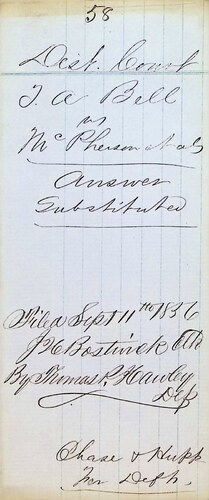 58
Dist. Court
T. A Bell
vs
McPherson et als
Answer
Substituted
Filed Sept 11th 1856
J H Bostwick Clk
By Thomas P. Hawley
Dep
Chase & Hupp
for Defts.